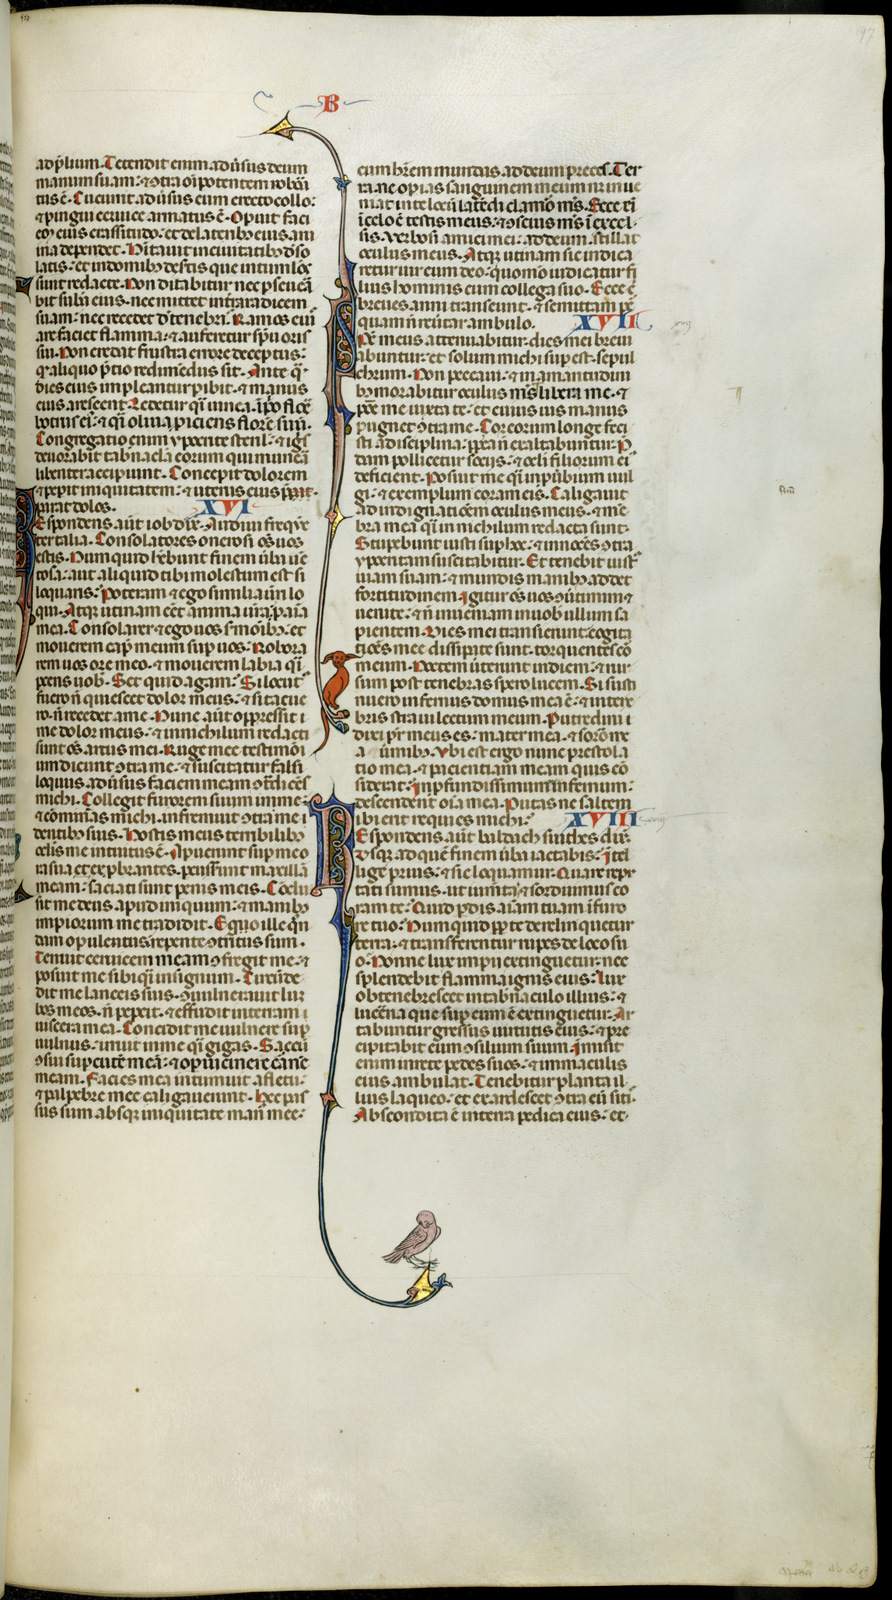 B
ad p̄lium. Tetendit enim aduersus deum
manum suam: et ɔtra oīpotentem robora
tus ē. Cucurrit aduersus eum erecto collo:
et pingui ceruice armatus ē. Opuit faci
em eius crassitudo: et de laterib; eius aru
ina dependet. Hītauit in ciuitatib; deso
latis: et in domib; desertis que in tumulos
sunt redacte. Non ditabitur nec perseuera
bit sub̄a eius. nec mittet in terra radicem
suam: nec recedet de tenebris. Ramos eius
arefaciet flamma: et auferetur spū oris
sui. Non credat frustra errore deceptus:
q aliquo p̄tio redimendus sit. Ante q̄
dies eius impleantur pibit. et manus
eius arescent. Ledetur q̄i uinea ī p̄o flore
botrus ei: et q̄i oliua piciens florē suū.
Congregatio enim ypocrite sterilis: et ignis
deuorabit tab̄nacla eorum qui munera
libenter accipiunt. Concepit dolorem
et pepit iniquitatem: et uterus eius prep
parat dolos. XVI
Respondens aūt iob dix̄. Audiui frequenter
talia. Consolatores onerosi om̄s uos
estis. Num quid h̄ebunt finem uerba uen
tosa: aut aliquid tibi molestum est si
loquaris: Poteram et ego similia ur̄i lo
qui. Atq; utinam eēt anima ur̄a p aīa
mea. Consolarer et ego uos smōib; et
mouerem cap̄ meum sup uos: Robora
rem uos ore meo. et mouerem labia q̄i
pcens uob. Set quid agam: Si locut
fuero n̄ quiescet dolor meus: et si tacue
ro. n̄ recedet a me. Nunc aūt oppressit
me dolor meus: et in nichilum redacti
sunt om̄s artus mei. Ruge mee testimōi
um dicunt ɔtra me: et suscitatur falsi
loquus. aduersus faciem meam ɔtradicēs
michi. Collegit furorem suum in me:
et comminās michi. infremuit ɔtra me
dentib; suis. Hostis meus terribilib;
oclis me intuitus ē. Apuerunt sup me o
ra sua et exprobrantes. percusserunt maxillā
meam: saciati sunt penis meis. Cōclu
sit me deus apud iniquum: et manib;
impiorum me tradidit. Ego ille q̄n
dam opulentus: repente ɔtritus sum.
Tenuit ceruicem meam ɔfregit me: et
posuit me sibi q̄i in signum. Circūde
dit me lanceis suis. ɔuulnerauit lum
bos meos. n̄ pepcit. et effudit in terram
uiscera mea. Concidit me uulnere sup
uulnus: irruit in me q̄i gigas. Saccū
ɔsui sup cutē meā: et opui cinere carnē
meam. Facies mea intumuit a fletu:
et palpebre mee caligauerunt. Hec pas
sus sum absq; iniquitate man̄ mee:
cum h̄rem mundas ad deum preces. Ter
ra. ne opias sanguinem meum n in ue
niat in te locū latēdi clamor ms̄. Ecce eni
ī celo ē testis meus: et ɔscius ms̄ ī excel
sis. Verbosi amici mei: ad deum stillat
oculus meus. Atq; utinam sic iudica
retur uir cum deo: quomo iudicatur fi
lius hominis cum collega suo. Ecce ē
breues anni transeunt. et semitam p̄
quam n̄ reūtar ambulo. XVII
Spc̄ meus attenuabitur. dies mei breui
abuntur: et solum michi sup est sepul
chrum. Non peccaui: et in amaritudini
b; morabitur oculus ms̄. libera me. et
pone me iuxta te: et cuius uis manus
pugnet ɔtra me. Cor eorum longe feci
sti a disciplina: pp̄ea n̄ exaltabuntur. P
dam pollicetur sociis: et oculi filiorum ei
deficient. Posuit me q̄i in puerbium uul
gi: et exemplum coram eis. Caligauit
ad indignatiōem oculus meus. et mē
bra mea q̄i in nichilum redacta sunt.
Stupebunt iusti sup hoc: et innocēs ɔtra
ypocritam suscitabitur. Et tenebit iust
uiam suam: et mundis manib; addet
fortitudinem. Igitur om̄s uos ɔuertimini et
uenite: et n̄ inueniam in uob ullum sa
pientem. Dies mei transierunt: cogita
tiōes mee dissipate sunt. torquentes cor
meum. Noctem ūterunt in diem: et rur
sum post tenebras spero lucem. Si susti
nuero infernus domus mea ē: et in tene
bris straui lectum meum. Putredini
dixi pr̄ meus es: mater mea. et soror m̄
a uermib;. Ubi est ergo nunc prestola
tio mea. et pacientiam meam quis cō
siderat: In pfundissimum infernum:
descendent oīa mea. Putas ne saltem
ibi erit requies michi: XVIII
Respondens aūt baldach suithes dix̄.
Usq; ad quē finem uerba iactabis: Itel
lige prius: et sic loquamur. Quare repu
tati sumus. ut iumēta et sorduimus co
ram te: Quid pdis aīam tuam ī furo
re tuo: Num quid pp̄ te derelinquetur
terra: et transferentur rupes de loco su
o: Nonne lux impii extinguetur: nec
splendebit flamma ignis eius: Lux
obtenebrescet in tab̄naculo illius: et
lucerna que sup eum ē extinguetur. Ar
tabuntur gressus uirtutis eius: et pre
cipitabit eum ɔsilium suum. Inmisit
enim in rete pedes suos: et in maculis
eius ambulat. Tenebitur planta il
lius laqueo: et exardescet ɔtra eū sitis.
Abscondita ē in terra pedica eius: et